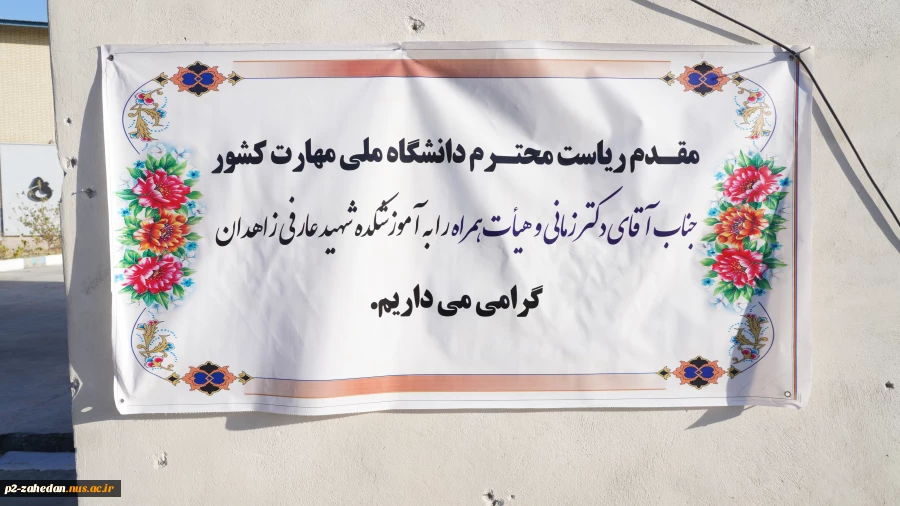 مقدم ریاست محترم دانشگاه ملی مهارت کشور
جناب آقای دکتر زمانی و هیأت همراه را به آموزشکده شهید عارفی زاهدان
گرامی می داریم.
p2-zahedan.nus.ac.ir